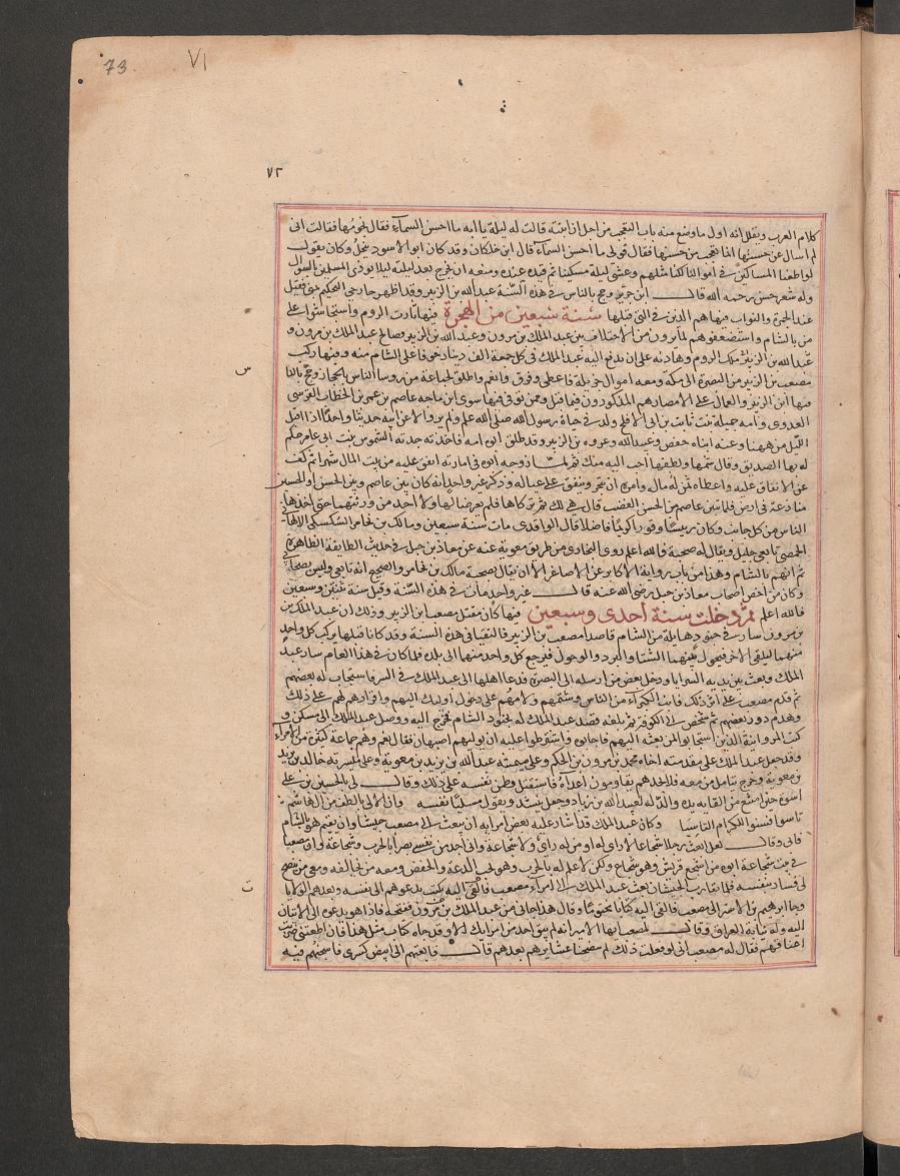 73 VI
٧٢
كلام العرب ويقال انه اول ما وضع منه باب التعجب من اجل ان ابنته قالت له ليلة يا ابه ما احسن السماء فقال نجومها فقالت انى
لم اسال عن حسنها انما تعجبت من حسنها فقال قولى ما احسن السماء قال ابن خلكان وقد كان ابو الاسود يبخل وكان يقول
لو اطعنا المساكين فى اموالنا لكنا مثلهم وعشى ليلة مسكينا ثم قيده عنده ومنعه ان يخرج بعد ليلته ليلا يوذى المسلمين بالسوال
وله شعر حسن رحمه الله قال ابن جرير وحج بالناس فى هذه السنة عبد الله بن الزبير وقد اظهر خارجى التحكيم بمنى فقتل
عند الجمرة والنواب فيها هم الذين فى التى قبلها سنة سبعين من الهجرة فيها ثارت الروم واستجاشوا على
من بالشام واستضعفوهم لما يرون من الاختلاف بين عبد الملك بن مرون وعبد الله بن الزبير وصالح عبد الملك بن مرون و
عبد الله بن الزبير ملك الروم وهادنه على ان يدفع اليه عبد الملك فى كل جمعة الف دينار خوفا على الشام منه وفيها ركب
س
مصعب بن الزبير من البصرة الى مكة ومعه اموال جزيلة فاعطى وفرق وانعم واطلق لجماعة من روسا الناس بالحجاز وحج بالنا
فيها ابن الزبير والعمال على الامصار هم المذكورون فيما قبل وممن توفى فيها سوى ابن ماجه عاصم بن عمر بن الخطاب القرشى
العدوى وامه جميلة بنت ثابت بن ابى الاقلح ولد فى حياة رسول الله صلى الله عليه ولم يرو الا عن ابيه حديثا واحدا اذا اقبل
الليل من ههنا وعنه ابناه حفص وعبيد الله وعروه بن الزبير وقد طلق ابوه امه فاخذته جدته الشموس بنت ابى عامر حكم
له بها الصديق وقال شمها ولطفها احب اليه منك ثم لما زوجه ابوه فى امارته انفق عليه من بيت المال شهرا ثم كف
عن الانفاق عليه واعطاه ثمن له مال وامره ان يتجر وينفق على عياله وذكر غير واحد انه كان بين عاصم وبين الحسن او الحسين
منازعة فى ارض فلما تبين عاصم من الحسن الغضب قال هى لك ثم تركاها فلم يعرضا لها ولا احد من ورثتهما حتى اخذها
الناس من كل جانب وكان رييسا وقورا كريما فاضلا قال الواقدى مات سنة سبعين ومالك بن يخامر السكسكى الالهانى
الحمصى تابعى جليل ويقال له صحبة فالله اعلم روى البخارى من طريق معوية عنه عن معاذ بن جبل فى حديث الطايفة الظاهرة
ثم انهم بالشام وهذا من باب رواية الاكابر عن الاصاغر الا ان يقال بصحبة مالك بن يخامر والصحيح انه تابعى وليس بصحابى
وكان من اخص اصحاب معاذ بن جبل رضى الله عنه قال غير واحد مات فى هذه السنة وقيل سنة ثنتين وسبعين
فالله اعلم ثم دخلت سنة احدى وسبعين فيها كان مقتل مصعب ابن الزبير وذلك ان عبد الملك بن
بن مرون سار فى جنود هايلة من الشام قاصدا مصعب بن الزبير فالتقيا فى هذه السنة وقد كانا قبلها يركب كل واحد
منهما ليلتقى الاخر فيحول بينهما الشتا والبرد والوحول فيرجع كل واحد منهما الى بلده فلما كان فى هذا العام سار عبد
الملك وبعث بين يديه السرايا ودخل بعض من ارسله الى البصرة فدعا اهلها الى عبد الملك فى السر فاستجاب له بعضهم
ثم قدم مصعب على اثر ذلك فانب الكبراء من الناس وشتمهم ولامهم على دخول اوليك اليهم واقرارهم لهم على ذلك
وهدم دور بعضهم ثم شخص الى الكوفة ثم بلغه قصد عبد الملك له بجنود الشام فخرج اليه ووصل عبد الملك الى مسكن و
كتب الى المروانية الذين استجابوا لمن بعثه اليهم فاجابوه واشترطوا عليه ان يوليهم اصبهان فقال نعم وهم جماعة كثيرة من الامراء
وقد جعل عبد الملك على مقدمته اخاه محمد بن مرون بن الحكم وعلى ميمنته عبد الله بن يزيد بن معوية وعلى الميسرة خالد بن يزيد
بن معوية وخرج
اسوة حين امتنع من القايه يده والذلة لعبيد الله بن زياد وجعل ينشد ويقول مسليا نفسه وان الاولى بالطف من آل هاشم
تاسوا فسنوا للكرام التاسيا وكان عبد الملك قد اشار عليه بعض امرايه ان يبعث الى مصعب جيشا وان يقيم هو بالشام
فابى وقال لعلى ابعث رجلا شجاعا لا راى له او من له راى ولا شجاعة وانى اجد من نفسى بصرا بالحرب وشجاعة وان مصعبا
فى بيت شجاعة ابوه من اشجع قريش وهو شجاع ولكن لا علم له بالحرب وهو يحب الدعة والخفض ومعه من يخالفه ومعى من ينصح
ت
لى فسار بنفسه فلما تقارب الجيشان بعث عبد الملك الى امراء مصعب فالقى اليه كتب يدعوهم الى نفسه ويعدهم الولايا
وجا ابرهيم بن الاشتر الى مصعب فالقى اليه كتابا مختوما وقال هذا جانى من عبد الملك بن مرون ففتحه فاذا هو يدعوه الى الاتيان
اليه وله نيابة العراق وقال لمصعب ايها الامير انه لم يبق احد من امرايك الا وقد جاه كتاب مثل هذا فان اطعتنى ضربت
اعناقهم فقال له مصعب انى لو فعلت ذلك لم تنصحنا عشايرهم بعدهم قال فابعثهم الى ابيض كسرى فاسجنهم فيه